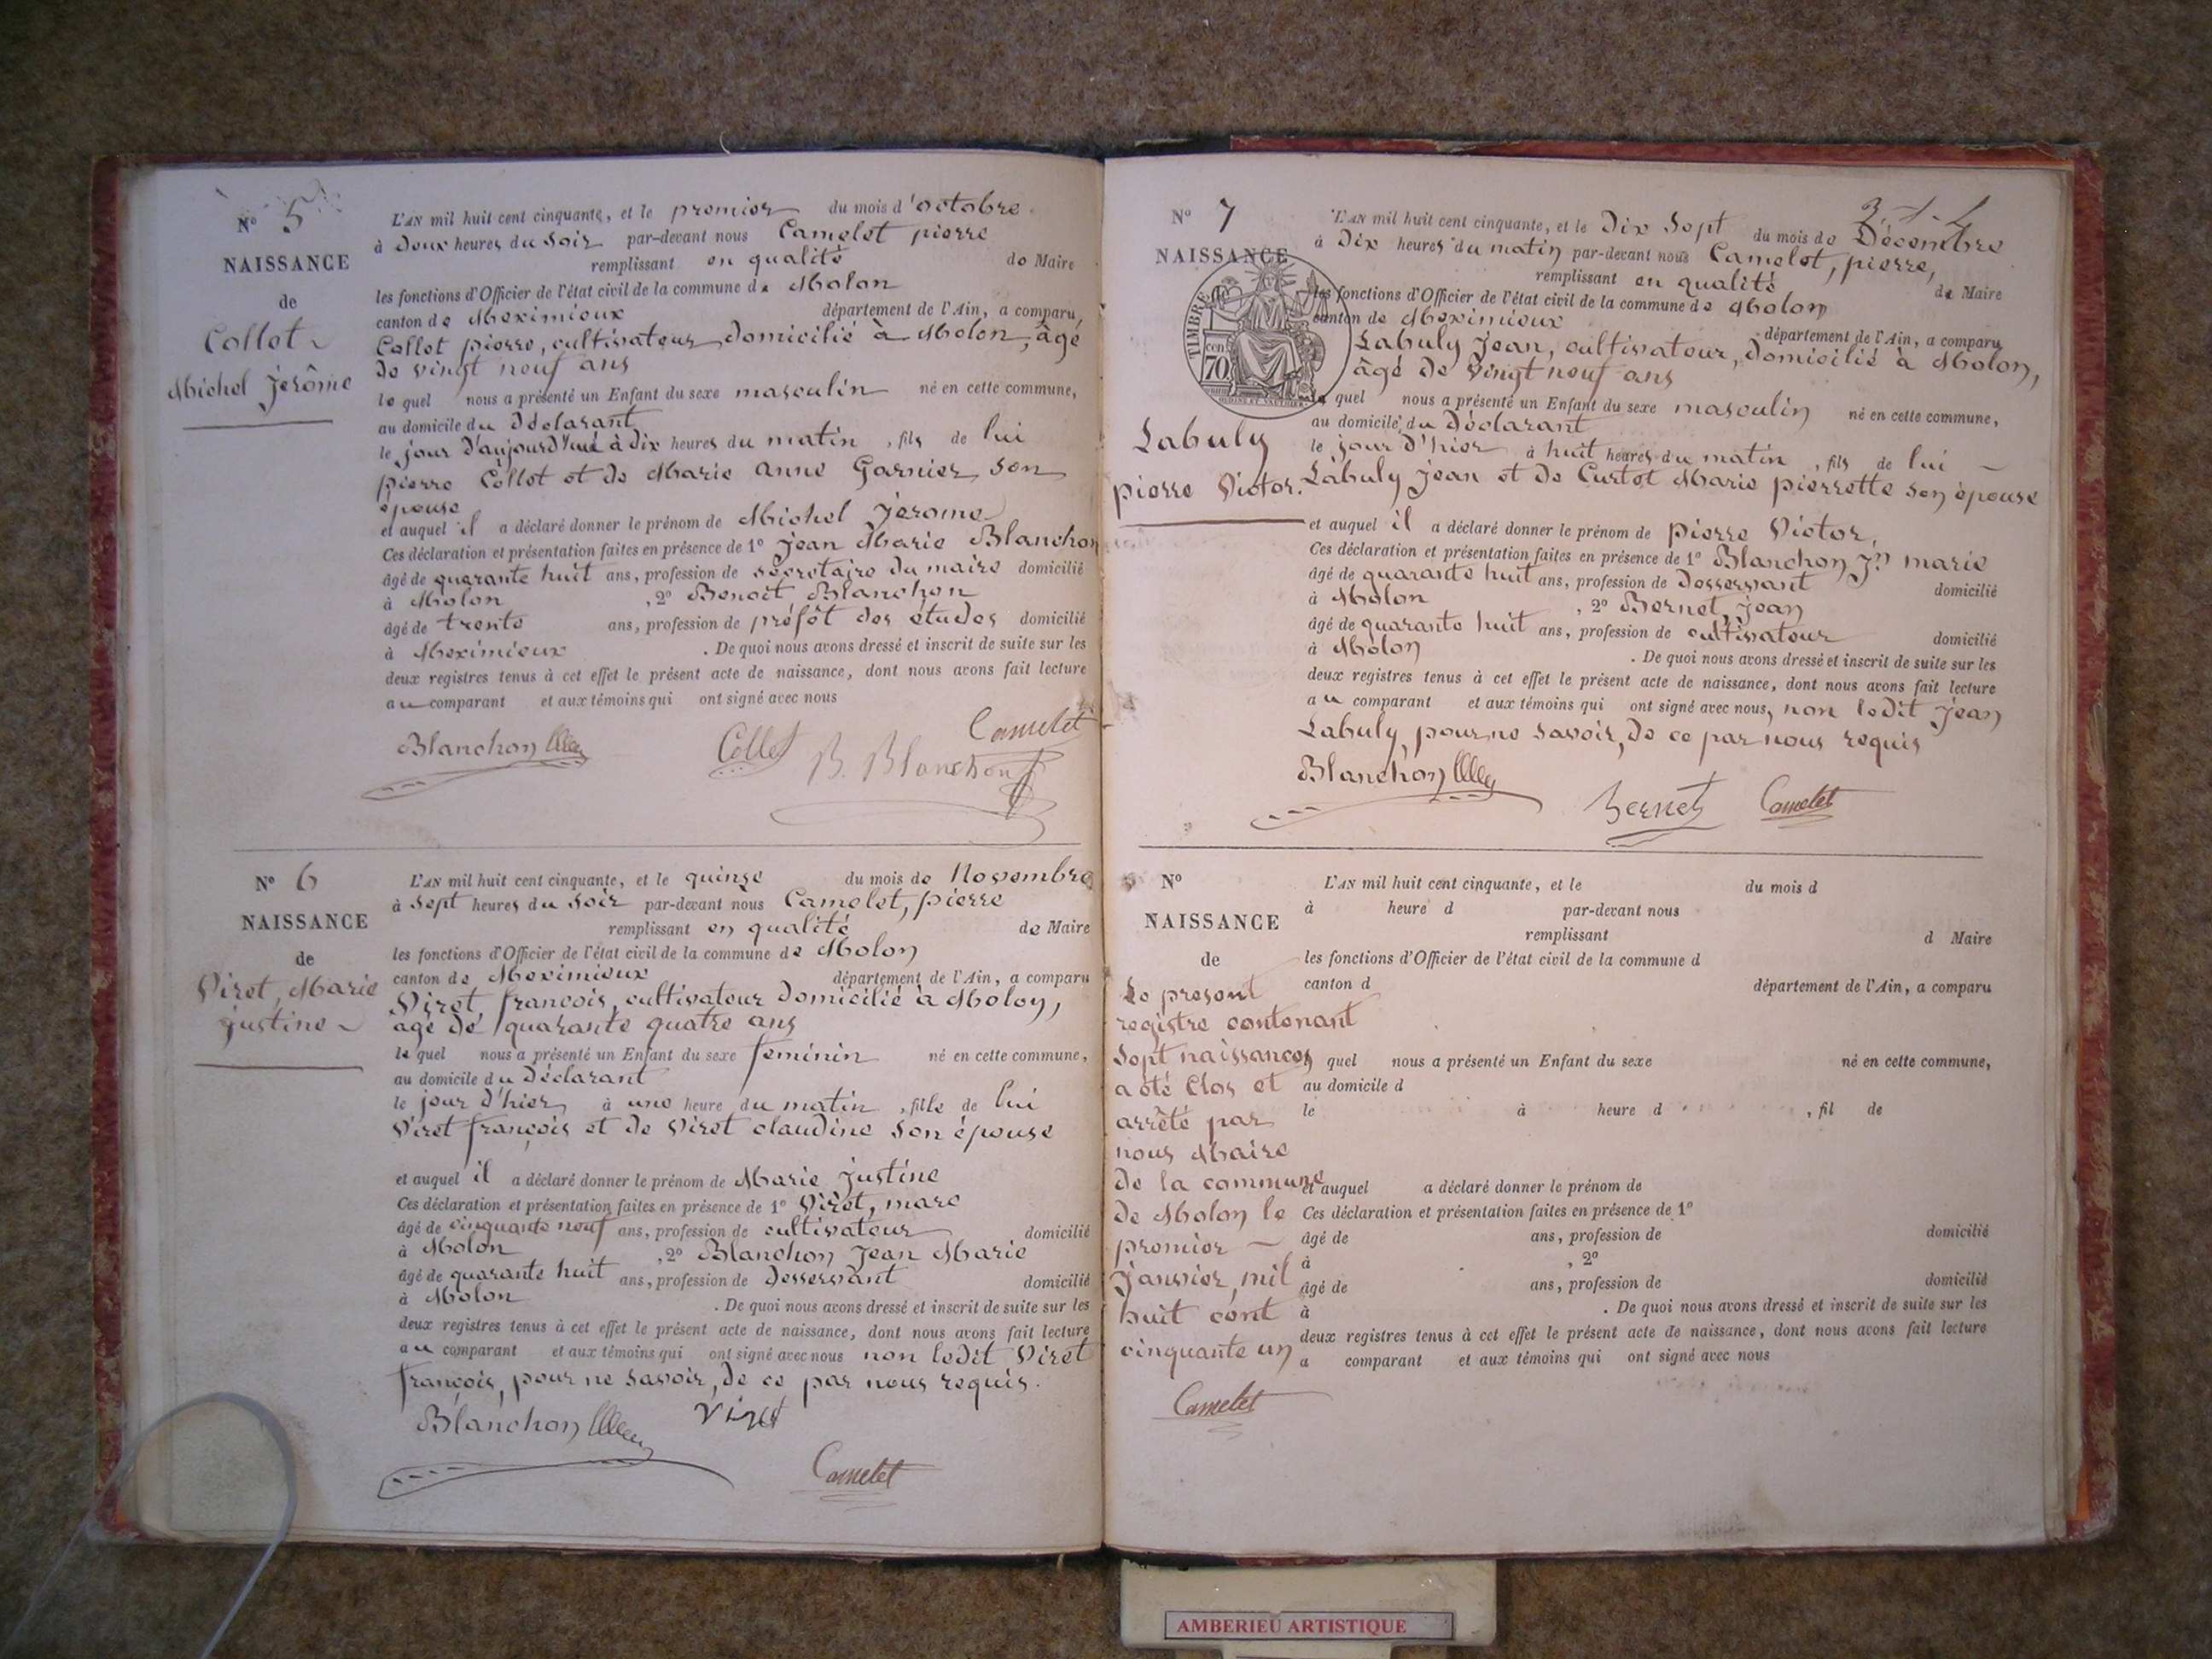 N° 5
NAISSANCE
de
Collet
Michel Jérôme
L'AN mil huit cent cinquante, et le premier du mois d'octobre
à Deux heures du Soir par-devant nous Camelet pierre
remplissant en qualité de Maire
les fonctions d'Officier de l'état civil de la commune de Molon
canton de Meximieux département de l'Ain, a comparu,
Collet pierre, cultivateur domicilié à Molon, âgé
de vingt neuf ans
le quel nous a présenté un Enfant du sexe masculin né en cette commune,
au domicile du Déclarant
le jour d'aujourd'hui à Dix heures du matin, fils de lui
pierre Collet et de Marie anne Garnier son
épouse
et auquel il a déclaré donner le prénom de Michel Jérome
Ces déclaration et présentation faites en présence de 1° Jean Marie Blanchon
âgé de quarante huit ans, profession de secretaire du maire domicilié
à Molon, 2° Benoit Blanchon
âgé de trente ans, profession de préfêt des études domicilié
à Meximieux. De quoi nous avons dressé et inscrit de suite sur les
deux registres tenus à cet effet le présent acte de naissance, dont nous avons fait lecture
au comparant et aux témoins qui ont signé avec nous
Blanchon Collet B. Blanchon Camelet
N° 6
NAISSANCE
de
Viret, Marie
justine
L'AN mil huit cent cinquante, et le quinze du mois de Novembre
à Sept heures du Soir par-devant nous Camelet, pierre
remplissant en qualité de Maire
les fonctions d'Officier de l'état civil de la commune de Molon
canton de Meximieux département de l'Ain, a comparu
Viret françois, cultivateur domicilié à Molon,
agé de quarante quatre ans
le quel nous a présenté un Enfant du sexe feminin né en cette commune,
au domicile du Déclarant
le jour d'hier à une heure du matin, fille de lui
Viret françois et de Viret claudine son épouse
et auquel il a déclaré donner le prénom de Marie justine
Ces déclaration et présentation faites en présence de 1° Viret, marc
âgé de cinquante neuf ans, profession de cultivateur domicilié
à Molon, 2° Blanchon Jean Marie
âgé de quarante huit ans, profession de Desservant domicilié
à Molon. De quoi nous avons dressé et inscrit de suite sur les
deux registres tenus à cet effet le présent acte de naissance, dont nous avons fait lecture
au comparant et aux témoins qui ont signé avec nous non ledit Viret
françois, pour ne savoir, de ce par nous requis.
Blanchon Viret
Camelet
N° 7
NAISSANCE
TIMBRE
cen. 70
Labuly
pierre Victor.
L'AN mil huit cent cinquante, et le Dix Sept du mois de Décembre
à Dix heures du matin par-devant nous Camelet, pierre,
remplissant en qualité de Maire
les fonctions d'Officier de l'état civil de la commune de Molon
canton de Meximieux département de l'Ain, a comparu
Labuly Jean, cultivateur, domicilié à Molon,
âgé de Vingt neuf ans
le quel nous a présenté un Enfant du sexe masculin né en cette commune,
au domicile du Déclarant
le jour d'hier à huit heures du matin, fils de lui
Labuly Jean et de Curtet Marie pierrette son épouse
et auquel il a déclaré donner le prénom de pierre Victor,
Ces déclaration et présentation faites en présence de 1° Blanchon Jn marie
âgé de quarante huit ans, profession de Desservant domicilié
à Molon, 2° Bernet, jean
âgé de quarante huit ans, profession de cultivateur domicilié
à Molon. De quoi nous avons dressé et inscrit de suite sur les
deux registres tenus à cet effet le présent acte de naissance, dont nous avons fait lecture
au comparant et aux témoins qui ont signé avec nous, non ledit Jean
Labuly, pour ne savoir, de ce par nous requis
Blanchon Bernet Camelet
N°
NAISSANCE
de
Le present
registre contenant
Sept naissances
a été Clos et
arrêté par
nous Maire
de la commune
de Molon le
premier
janvier, mil
huit cent
cinquante un
Camelet
L'AN mil huit cent cinquante, et le du mois d
à heure d par-devant nous
remplissant d Maire
les fonctions d'Officier de l'état civil de la commune d
canton d département de l'Ain, a comparu
quel nous a présenté un Enfant du sexe né en cette commune,
au domicile d
le à heure d, fil de
et auquel a déclaré donner le prénom de
Ces déclaration et présentation faites en présence de 1°
âgé de ans, profession de domicilié
à, 2°
âgé de ans, profession de domicilié
à. De quoi nous avons dressé et inscrit de suite sur les
deux registres tenus à cet effet le présent acte de naissance, dont nous avons fait lecture
a comparant et aux témoins qui ont signé avec nous
AMBERIEU ARTISTIQUE